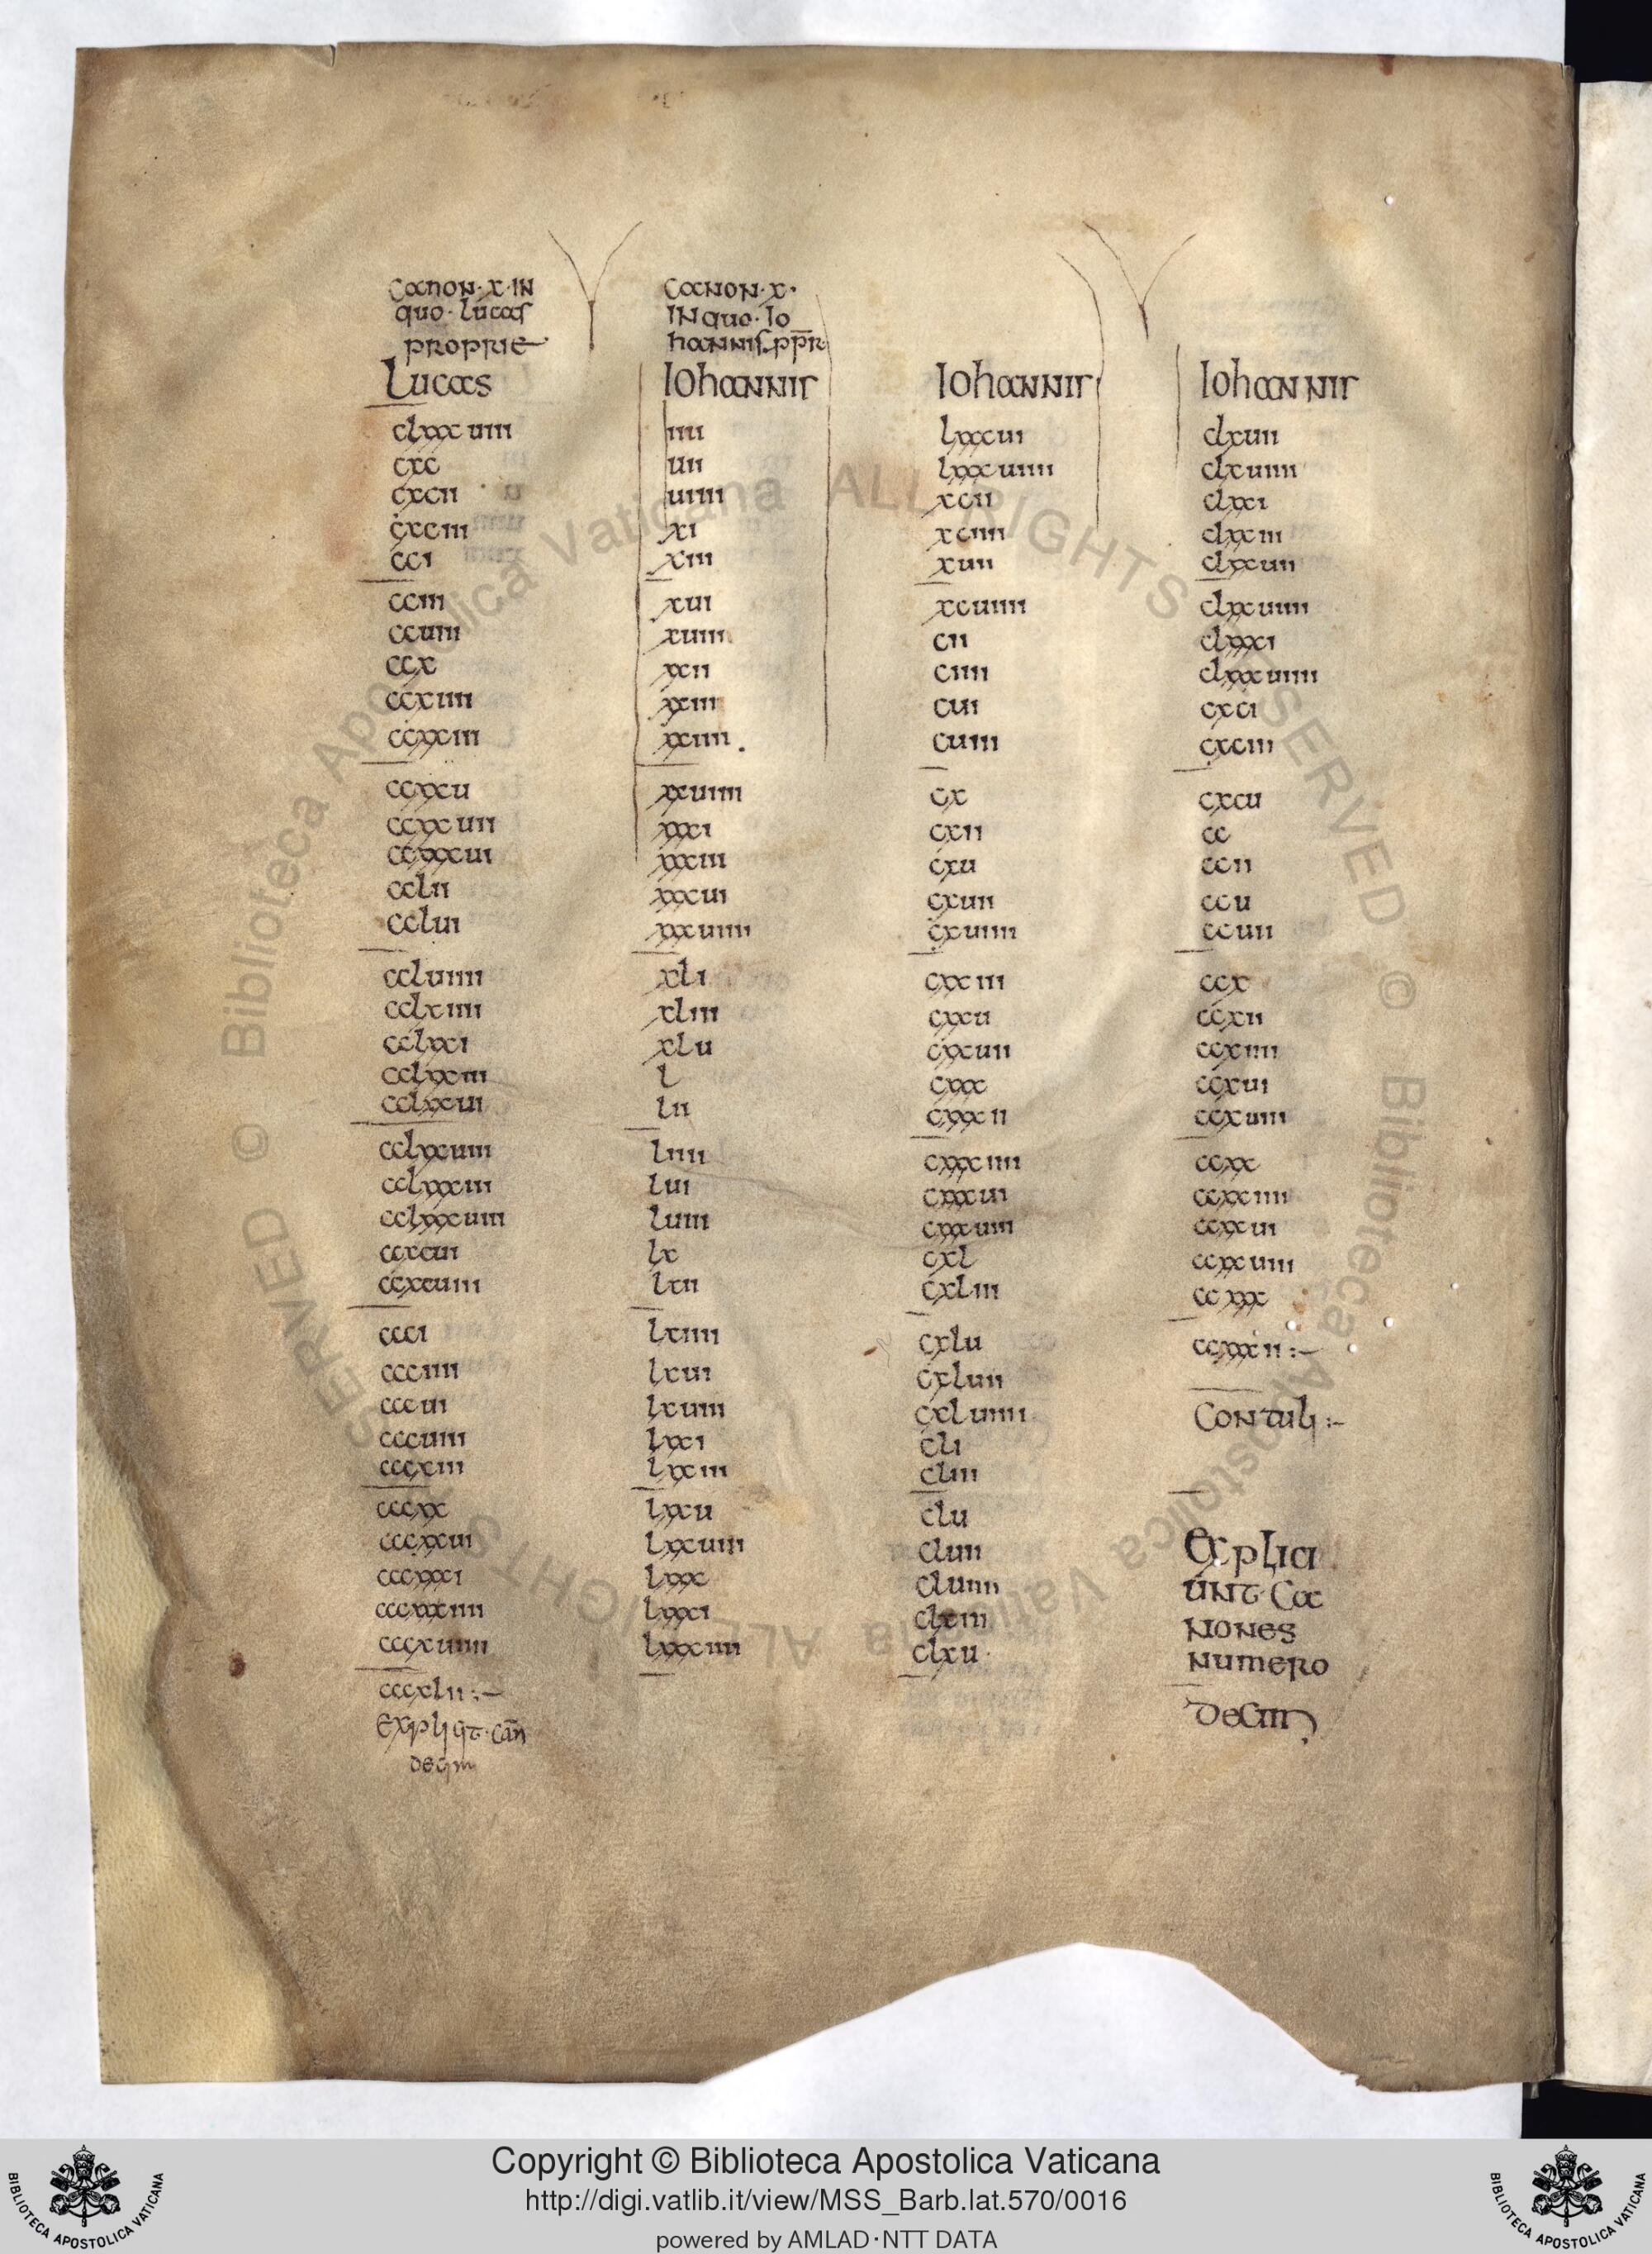 canon·x·in
quo·lucas
proprie
Lucas
clxxxuiii
cxc
cxcii
cxciii
cci
cciii
ccuiii
ccx
ccxiiii
ccxxiii
ccxxu
ccxxuii
ccxxxui
cclii
cclui
ccluiiii
cclxiiii
cclxxi
cclxxiii
cclxxui
cclxxuiii
cclxxxiii
cclxxxuiii
ccxcui
ccxcuiii
ccci
ccciiii
cccui
cccuiii
cccxiii
cccxx
cccxxui
cccxxxi
cccxxxiiii
cccxuiiii
cccxlii:–
explicit·can̄
decim
canon·x·
in quo·io
hannis·pp̄r
Iohannis
iiii
uii
uiiii
xi
xiii
xui
xuiii
xxii
xxiii
xxiiii.
xxuiiii
xxxi
xxxiii
xxxui
xxxuiiii
xli
xliii
xlu
l
lii
liiii
lui
luiii
lx
lxii
lxiiii
lxui
lxuiii
lxxi
lxxiii
lxxu
lxxuiii
lxxx
lxxxi
lxxxiiii
Iohannis
lxxxui
lxxxuiiii
xcii
xciiii
xuii
xcuiiii
cii
ciiii
cui
cuiii
cx
cxii
cxu
cxuii
cxuiiii
cxxiii
cxxu
cxxuii
cxxx
cxxxii
cxxxiiii
cxxxui
cxxxuiii
cxl
cxliii
cxlu
cxluii
cxluiiii
cli
cliii
clu
cluii
cluiiii
clxiii
clxu·
Iohannis
clxuii
clxuiiii
clxxi
clxxiii
clxxuii
clxxuiiii
clxxxi
clxxxuiiii
cxci
cxciii
cxcu
cc
ccii
ccu
ccuii
ccx
ccxii
ccxiiii
ccxui
ccxuiii
ccxx
ccxxiiii
ccxxui
ccxxuiii
ccxxx
ccxxxii:–
Contuli:–
Explici
unt·ca
nones
numero
decim
Copyright © Biblioteca Apostolica Vaticana
http://digi.vatlib.it/view/MSS_Barb.lat.570/0016
powered by AMLAD·NTT DATA
BIBLIOTECA APOSTOLICA VATICANA
BIBLIOTECA APOSTOLICA VATICANA